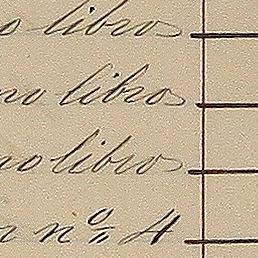 no libros
no libros
no libros
r nº 4